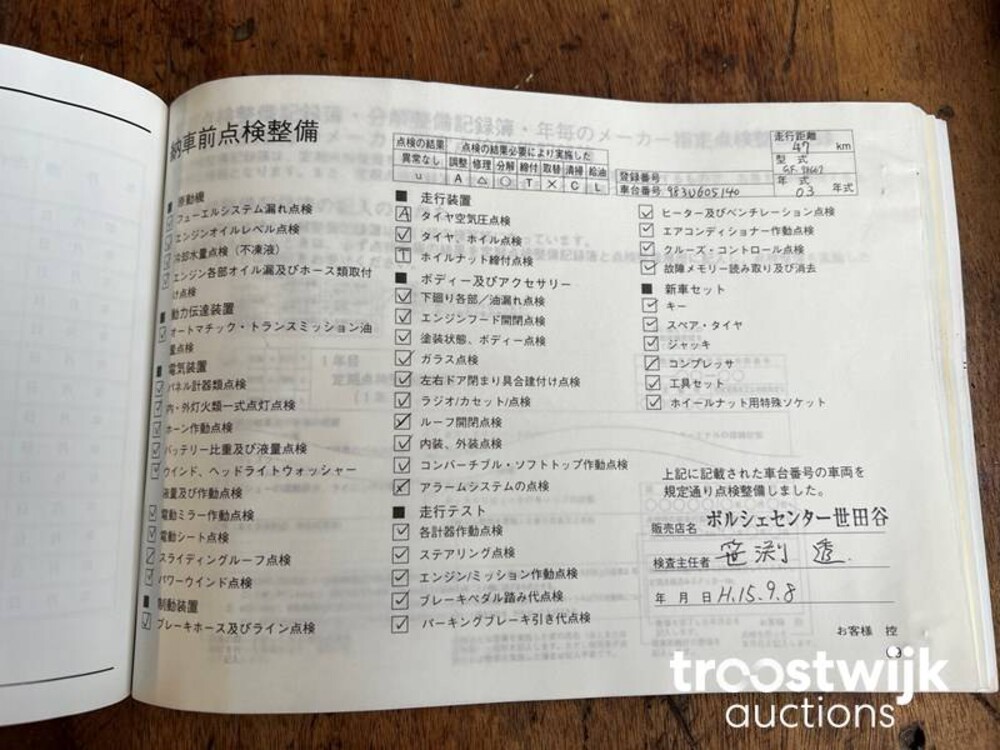 納車前点検整備
点検の結果 点検の結果必要により実施した
異常なし 調整 修理 分解 締付 取替 清掃 給油
レ A △ ○ T × C L
走行距離 47 km
型式 GF-98662
登録番号
車台番号 983U605140
年式 03 年式
■ 原動機
フューエルシステム漏れ点検
エンジンオイルレベル点検
冷却水量点検（不凍液）
エンジン各部オイル漏及びホース類取付
け点検
■ 動力伝達装置
オートマチック・トランスミッション油
量点検
■ 電気装置
パネル計器類点検
内・外灯火類一式点灯点検
ホーン作動点検
バッテリー比重及び液量点検
ウインド、ヘッドライトウォッシャー
液量及び作動点検
電動ミラー作動点検
電動シート点検
スライディングルーフ点検
パワーウインド点検
■ 制動装置
ブレーキホース及びライン点検
■ 走行装置
A タイヤ空気圧点検
タイヤ、ホイル点検
T ホイルナット締付点検
■ ボディー及びアクセサリー
下廻り各部／油漏れ点検
エンジンフード開閉点検
塗装状態、ボディー点検
ガラス点検
左右ドア閉まり具合建付け点検
ラジオ/カセット/点検
ルーフ開閉点検
内装、外装点検
コンバーチブル・ソフトトップ作動点検
アラームシステムの点検
■ 走行テスト
各計器作動点検
ステアリング点検
エンジン/ミッション作動点検
ブレーキペダル踏み代点検
パーキングブレーキ引き代点検
ヒーター及びベンチレーション点検
エアコンディショナー作動点検
クルーズ・コントロール点検
故障メモリー読み取り及び消去
■ 新車セット
キー
スペア・タイヤ
ジャッキ
コンプレッサ
工具セット
ホイールナット用特殊ソケット
上記に記載された車台番号の車両を
規定通り点検整備しました。
販売店名 ポルシェセンター世田谷
検査主任者 笹渕 透
年 月 日 H.15.9.8
お客様 控
troostwijk
auctions